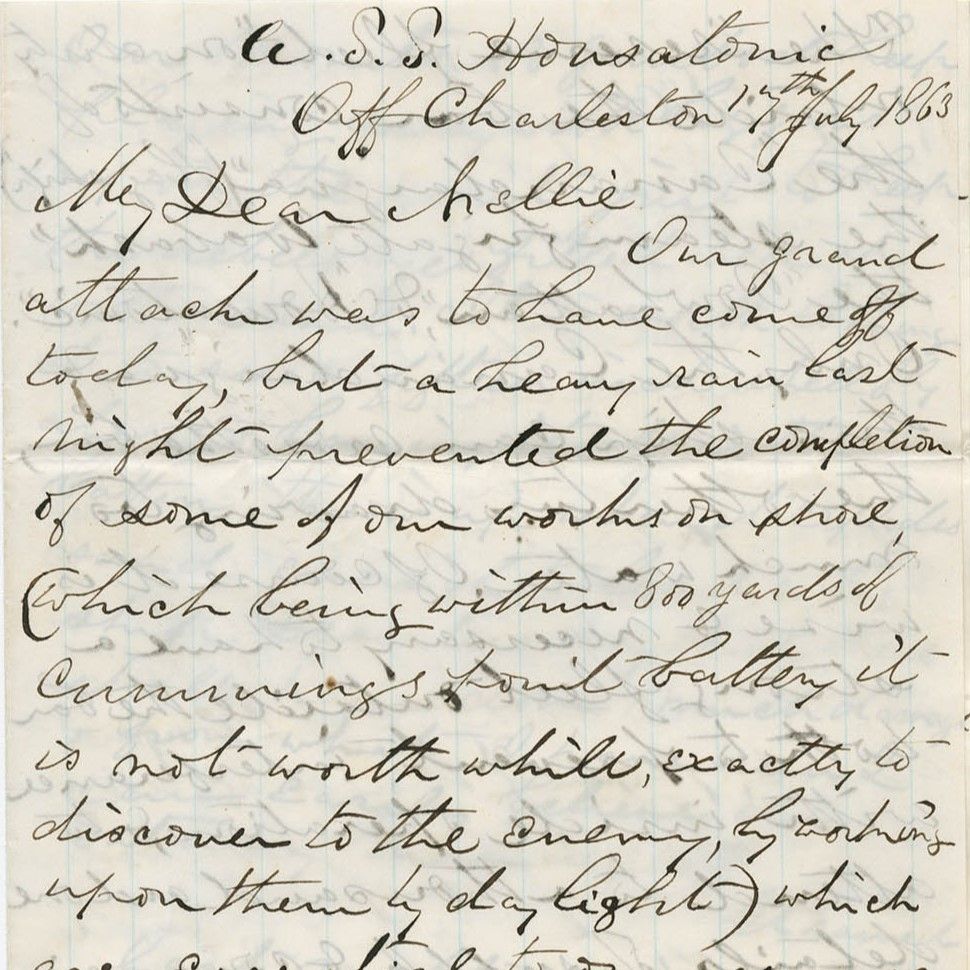 U.S.S. Housatonic
Off Charleston 17th July 1863
My Dear Nellie
Our grand
attack was, to have come off
today, but a heavy rain last
night prevented the completion
of some of our works on shore,
(which being within 800 yards of
Cummings point battery it
is not worth while, exactly to
discover to the enemy, by working
upon them by day light) which